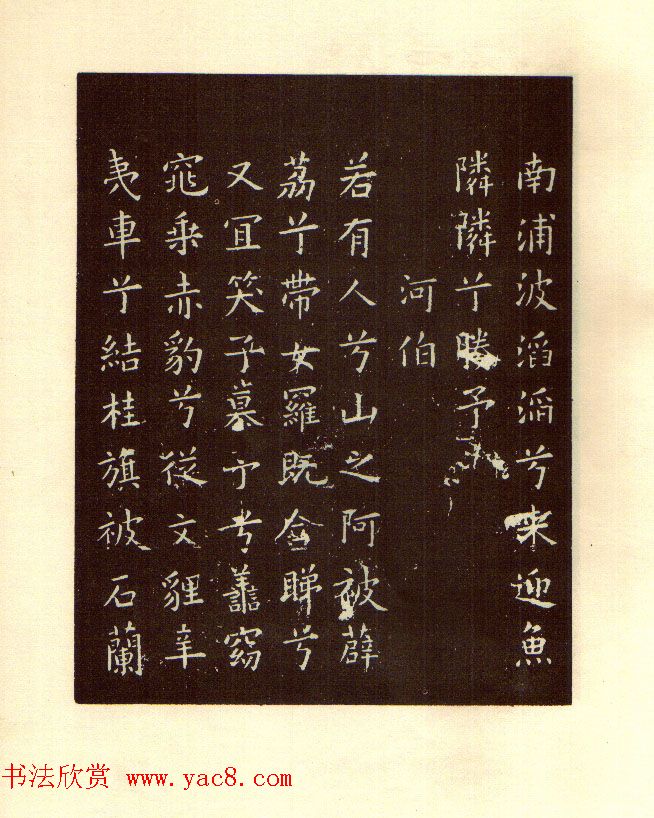 南浦波滔滔兮来迎魚
隣隣兮勝予
河伯
若有人兮山之阿被薜
荔兮帶女羅既含睇兮
又宜笑子慕予兮善窈
窕乘赤豹兮從文貍辛
夷車兮結桂旗被石蘭
书法欣赏 www.yac8.com